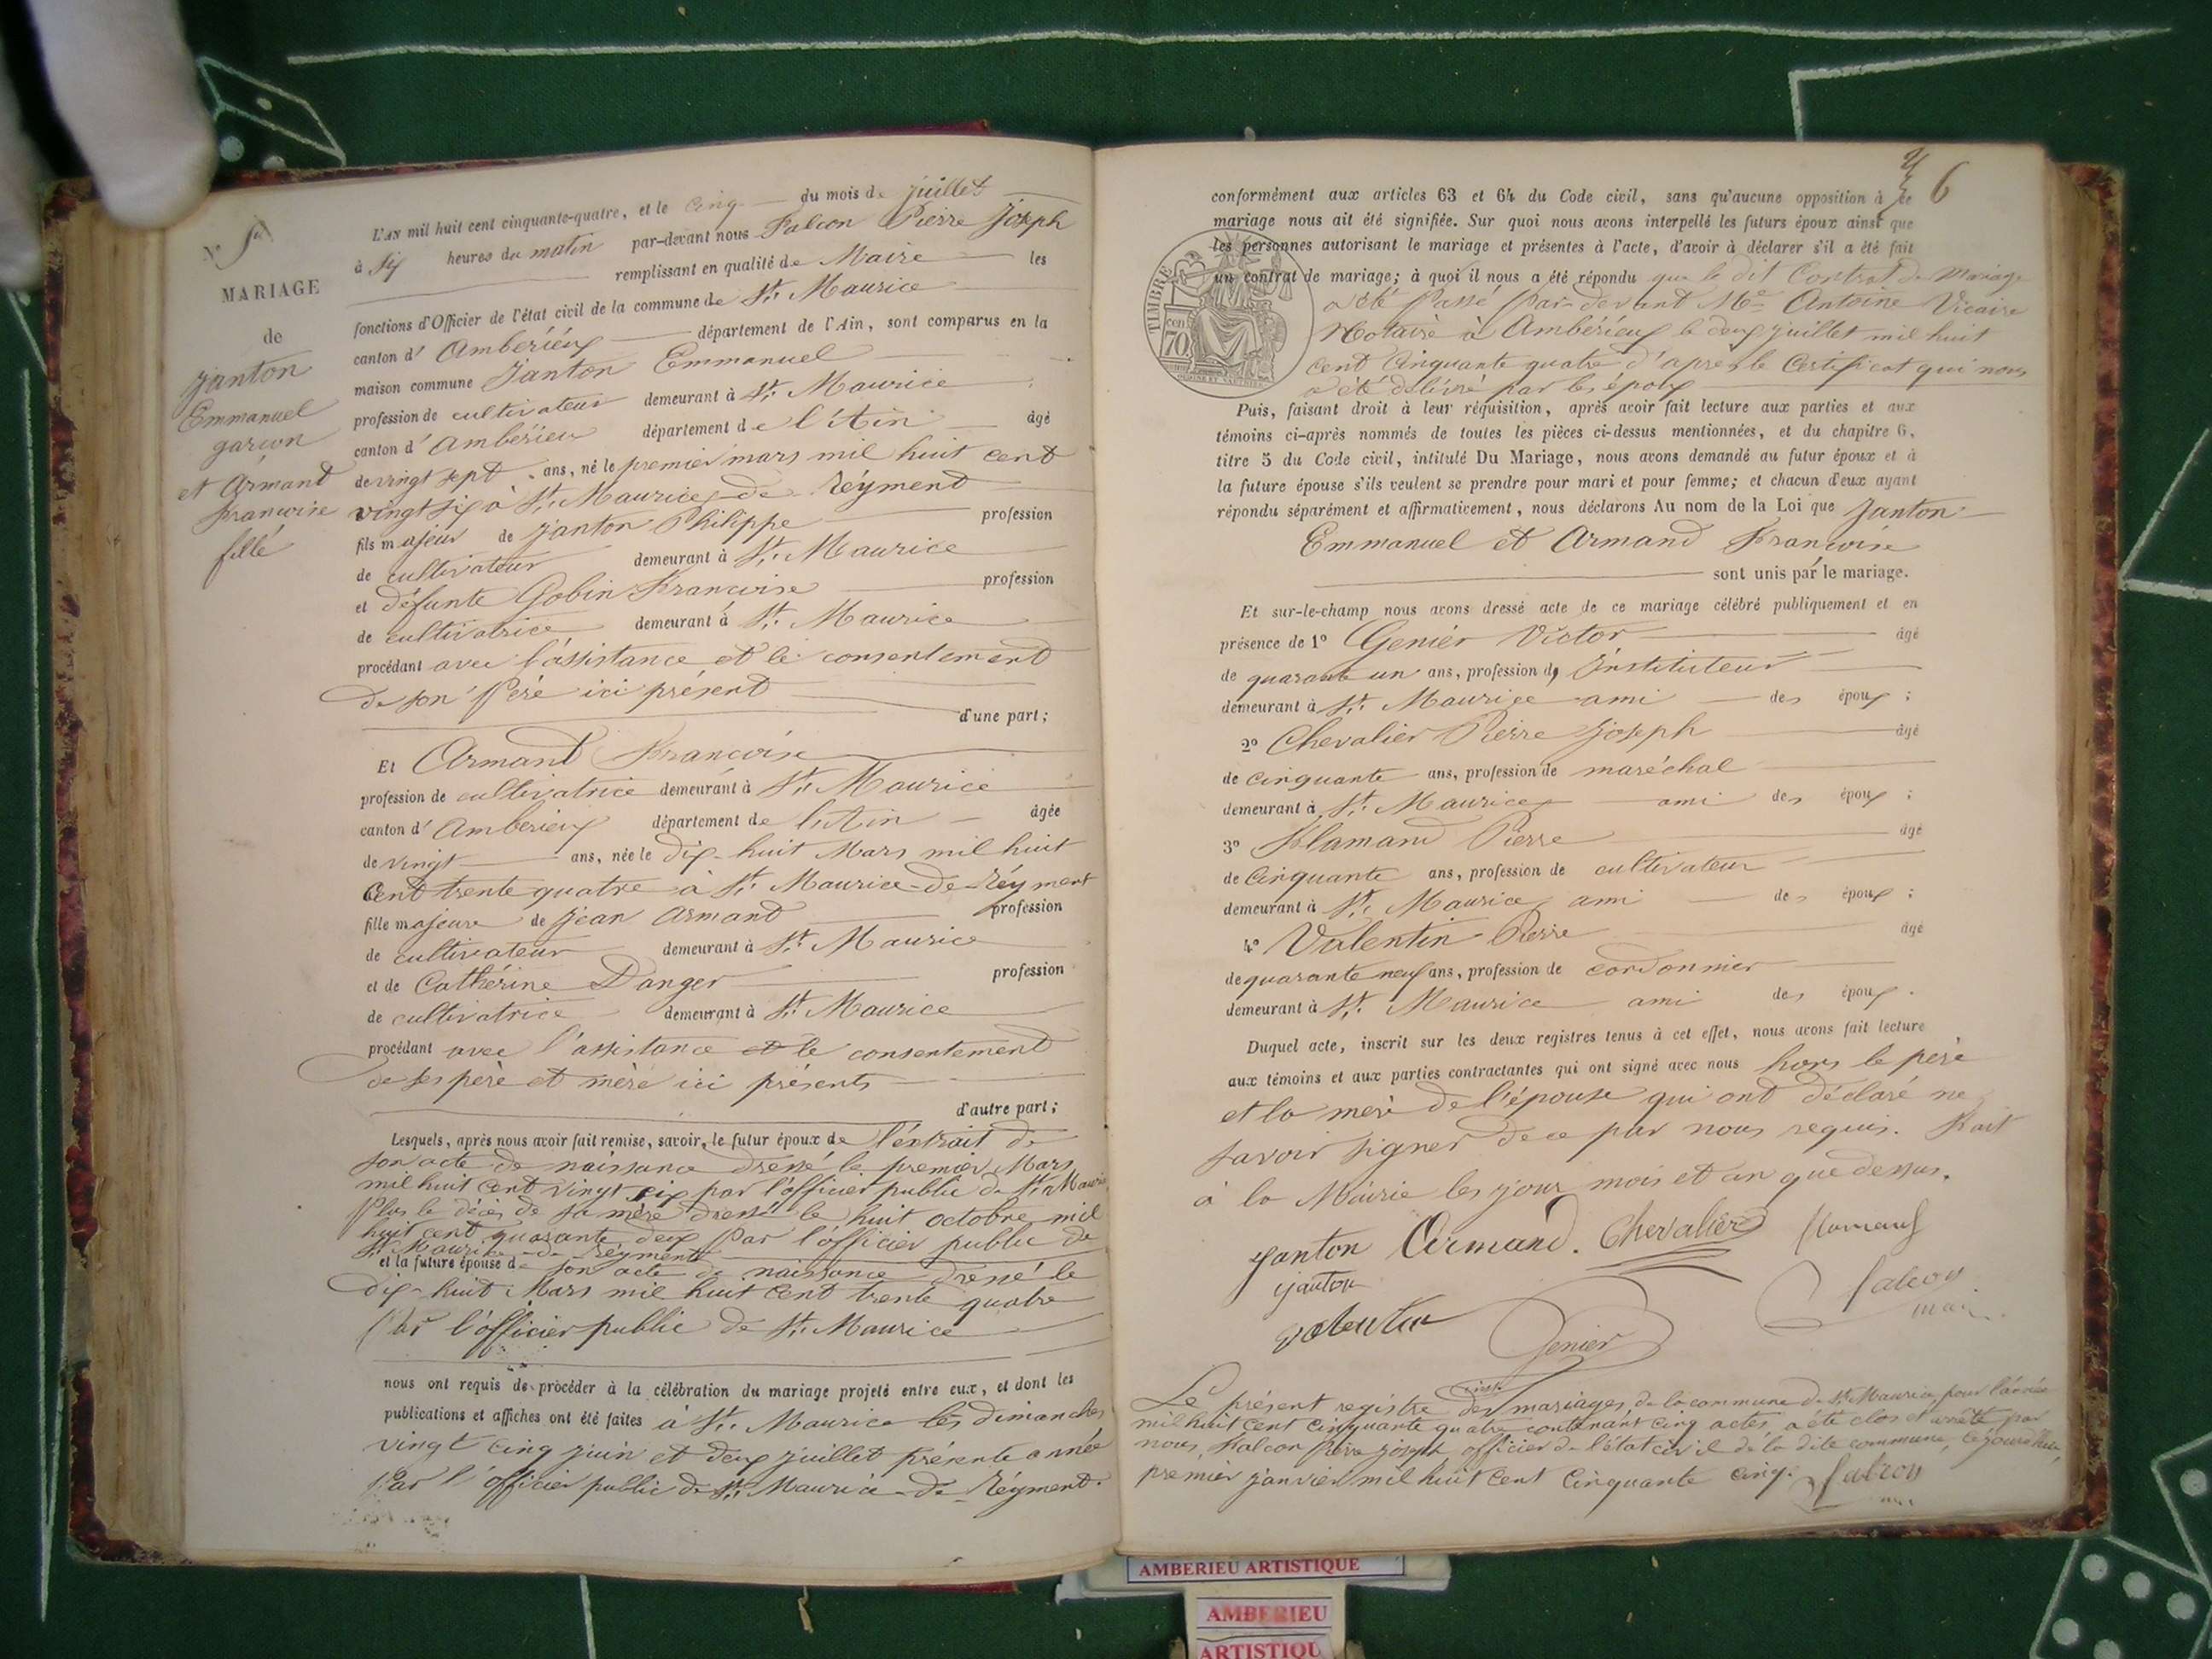 N° 5
MARIAGE
de
Janton
Emmanuel
garcon
et Armand
francoise
fille
L'AN mil huit cent cinquante-quatre, et le Cinq du mois de juillet
à six heures du matin par-devant nous Falcon Pierre Joseph
remplissant en qualité de Maire les
fonctions d'Officier de l'état civil de la commune de St. Maurice
canton d' Ambérieux département de l'Ain, sont comparus en la
maison commune Janton Emmanuel
profession de cultivateur demeurant à St. Maurice
canton d' Ambérieu département de l'Ain âgé
de vingt sept ans, né le premier mars mil huit cent
vingt six à St. Maurice de Réyment
fils majeur de Janton Philippe profession
de cultivateur demeurant à St. Maurice
et défunte Gobin Francoise profession
de cultivatrice demeurant à St. Maurice
procédant avec l'assistance et le consentement
de son Père ici présent
d'une part;
Et Armand Francoise
profession de cultivatrice demeurant à St. Maurice
canton d' Ambérieux département de l'Ain âgée
de vingt ans, née le dix-huit Mars mil huit
Cent trente quatre à St. Maurice-de-Réyment
fille majeure de Jean Armand profession
de cultivateur demeurant à St. Maurice
et de Cathérine Danger profession
de cultivatrice demeurant à St. Maurice
procédant avec l'assistance et le consentement
de ses père et mère ici présents
d'autre part;
Lesquels, après nous avoir fait remise, savoir, le futur époux de l'extrait de
son acte de naissance dressé le premier Mars
mil huit Cent vingt six par l'officier public de St. Maurice
Plus le décès de sa mère dressé le huit octobre mil
huit cent quarante deux Par l'officier public de
St. Maurice-de-Réyment
et la future épouse de son acte de naissance dressé le
dix-huit Mars mil huit Cent trente quatre
Par l'officier public de St. Maurice
nous ont requis de procéder à la célébration du mariage projeté entre eux, et dont les
publications et affiches ont été faites à St. Maurice les dimanches
vingt cinq juin et deux juillet présente année
Par l'officier public de St. Maurice-de-Réyment.
6
conformément aux articles 63 et 64 du Code civil, sans qu'aucune opposition à ce
mariage nous ait été signifiée. Sur quoi nous avons interpellé les futurs époux ainsi que
les personnes autorisant le mariage et présentes à l'acte, d'avoir à déclarer s'il a été fait
un contrat de mariage; à quoi il nous a été répondu que le dit Contrat de Mariage
a été Passé Par-devant Me Antoine Vicaire
Notaire à Ambérieux le deux juillet mil huit
cent Cinquante quatre d'après le Certificat qui nous
a été délivré par les époux
TIMBRE
cen 70
Puis, faisant droit à leur réquisition, après avoir fait lecture aux parties et aux
témoins ci-après nommés de toutes les pièces ci-dessus mentionnées, et du chapitre 6,
titre 5 du Code civil, intitulé Du Mariage, nous avons demandé au futur époux et à
la future épouse s'ils veulent se prendre pour mari et pour femme; et chacun d'eux ayant
répondu séparément et affirmativement, nous déclarons Au nom de la Loi que Janton
Emmanuel et Armand Francoise
sont unis par le mariage.
Et sur-le-champ nous avons dressé acte de ce mariage célébré publiquement et en
présence de 1° Genier Victor âgé
de quarante un ans, profession d' Instituteur
demeurant à St. Maurice ami des époux ;
2° Chevalier Pierre Joseph âgé
de Cinquante ans, profession de maréchal
demeurant à St. Maurice ami des époux ;
3° Flamand Pierre âgé
de Cinquante ans, profession de cultivateur
demeurant à St. Maurice ami des époux ;
4° Valentin Pierre âgé
de quarante neuf ans, profession de cordonnier
demeurant à St. Maurice ami des époux .
Duquel acte, inscrit sur les deux registres tenus à cet effet, nous avons fait lecture
aux témoins et aux parties contractantes qui ont signé avec nous hors le père
et la mère de l'épouse qui ont déclaré ne
savoir signer de ce par nous requis. Fait
à la Mairie les jour mois et an que dessus.
Janton Armand. Chevalier flamand
janton falcon
valentin Genier mai
inst.
Le présent registre des mariages de la commune de St. Maurice pour l'année
mil huit Cent Cinquante quatre contenant Cinq actes, a été clos et arrêté par
nous, Falcon Pierre Joseph officier de l'état civil de la dite commune, ce jourd'hui
premier janvier mil huit Cent Cinquante Cinq. falcon
AMBERIEU ARTISTIQUE
AMBERIEU
ARTISTIQU